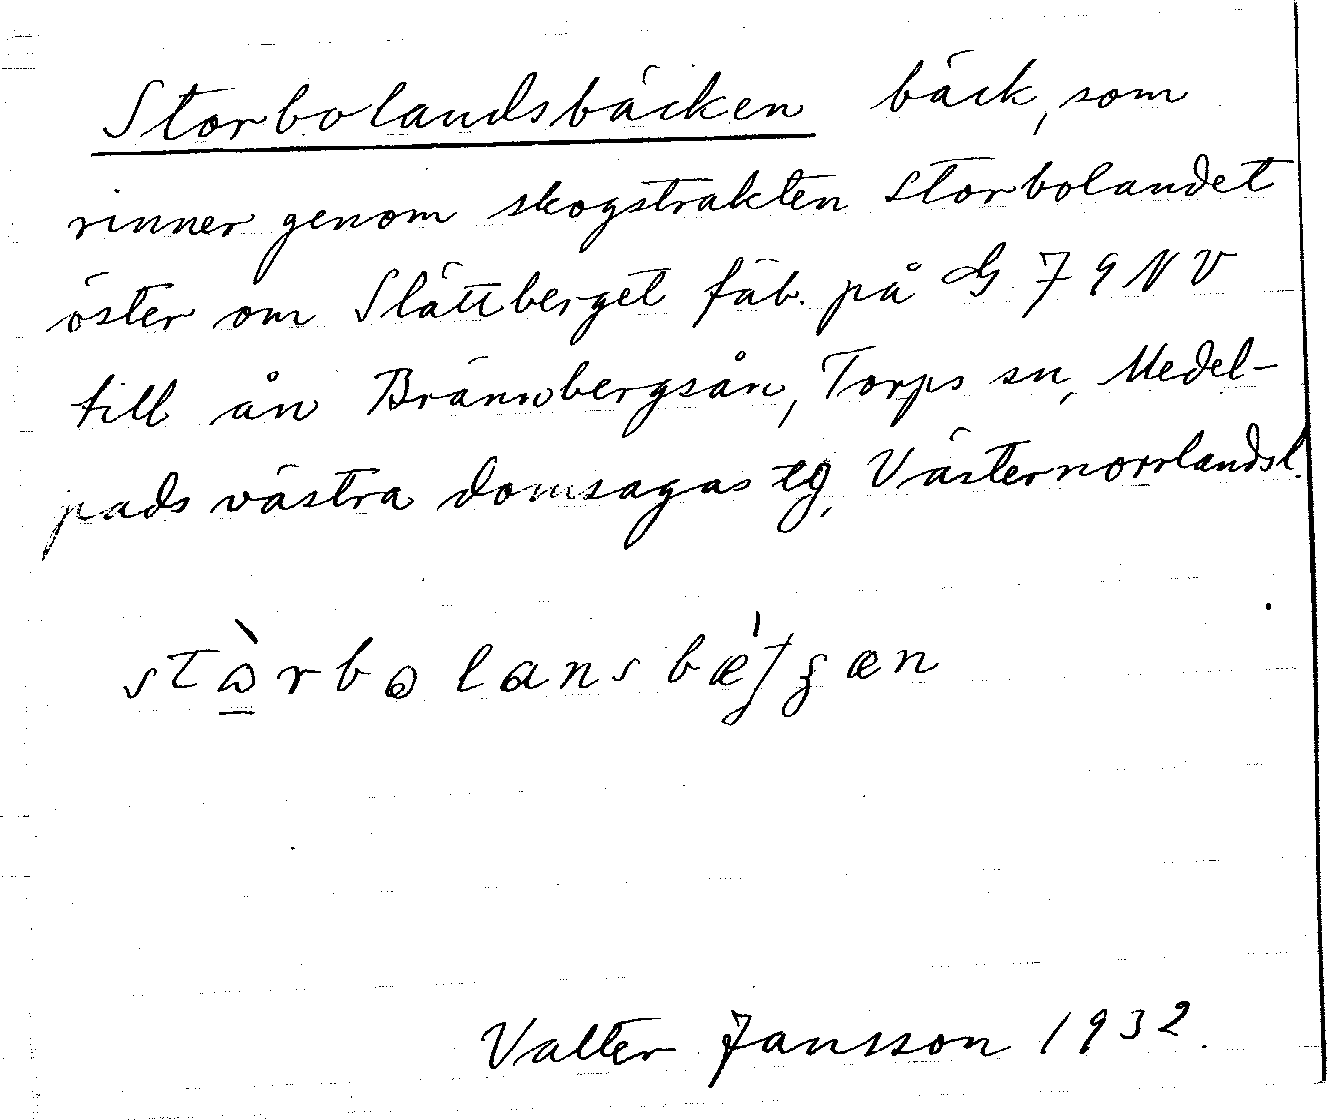 Storbolandsbäcken bäck, som
rinner genom skogstrakten Storbolandet
öster om Slättberget fäb. på G 79 NV
till ån Brännbergsån, Torps sn, Medel-
pads västra domsagas tg, Västernorrlands l.
Valter Jansson 1932.